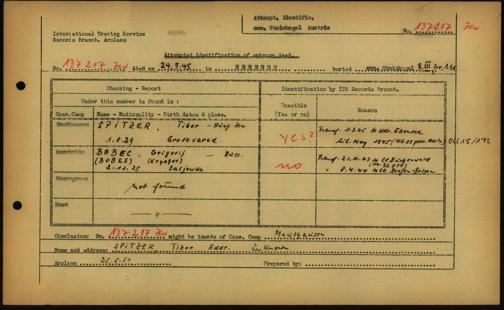 Attempt. Identific.
International Tracing Service
Records Branch. Arolsen
com. Steinkogel Austria
No. 137217 Jew
Attempted identification of unknown dead.
No. 137217 Jew died on 24.5.45 in XXXXXXX buried com. Steinkogel R III Gr.
Checking - Report
Identification by ITS Records Branch.
Under this number is found in :
Possible (Yes or no)
Reason
Conc. Camp Name - Nationality - Birth dates & place.
Mauthausen SPITZER, Tibor - Hung Jew
1.8.29 Grosswarad
yes?
Transf. 1.3.45 to Kdo. Ebensee
lib. May 1945 OCC 15/192
Auschwitz BABEC, Grigorij - Russ.
(BOBES)
2.11.25
no
Transf. 21.11.43 to CC Buchenwald
" 8.4.44 to CC Bergen-Belsen
not found
— " —
Conclusion: No. 137217 Jew might be inmate of Conc. Camp Mauthausen
Name and address: SPITZER Tibor Addr. unknown
Arolsen 25.5.51 Prepared by: